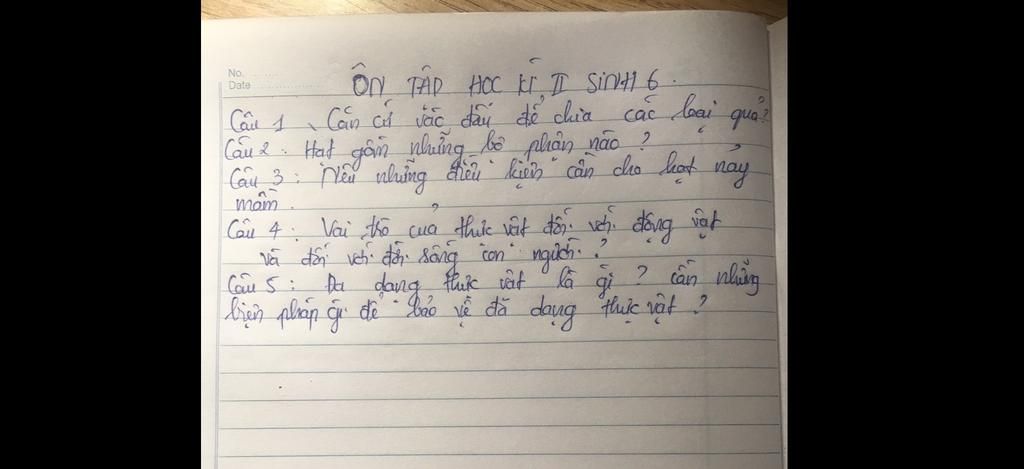 No.
Date
ÔN TẬP HỌC KÌ II SINH 6.
Câu 1. Căn cứ vào đâu để chia các loại quả?
Câu 2: Hạt gồm những bộ phận nào?
Câu 3: Nêu những điều kiện cần cho hạt nảy
mầm.
Câu 4: Vai trò của thực vật đối với động vật
và đối với đời sống con người?
Câu 5: Đa dạng thực vật là gì? cần những
biện pháp gì để bảo vệ đa dạng thực vật?